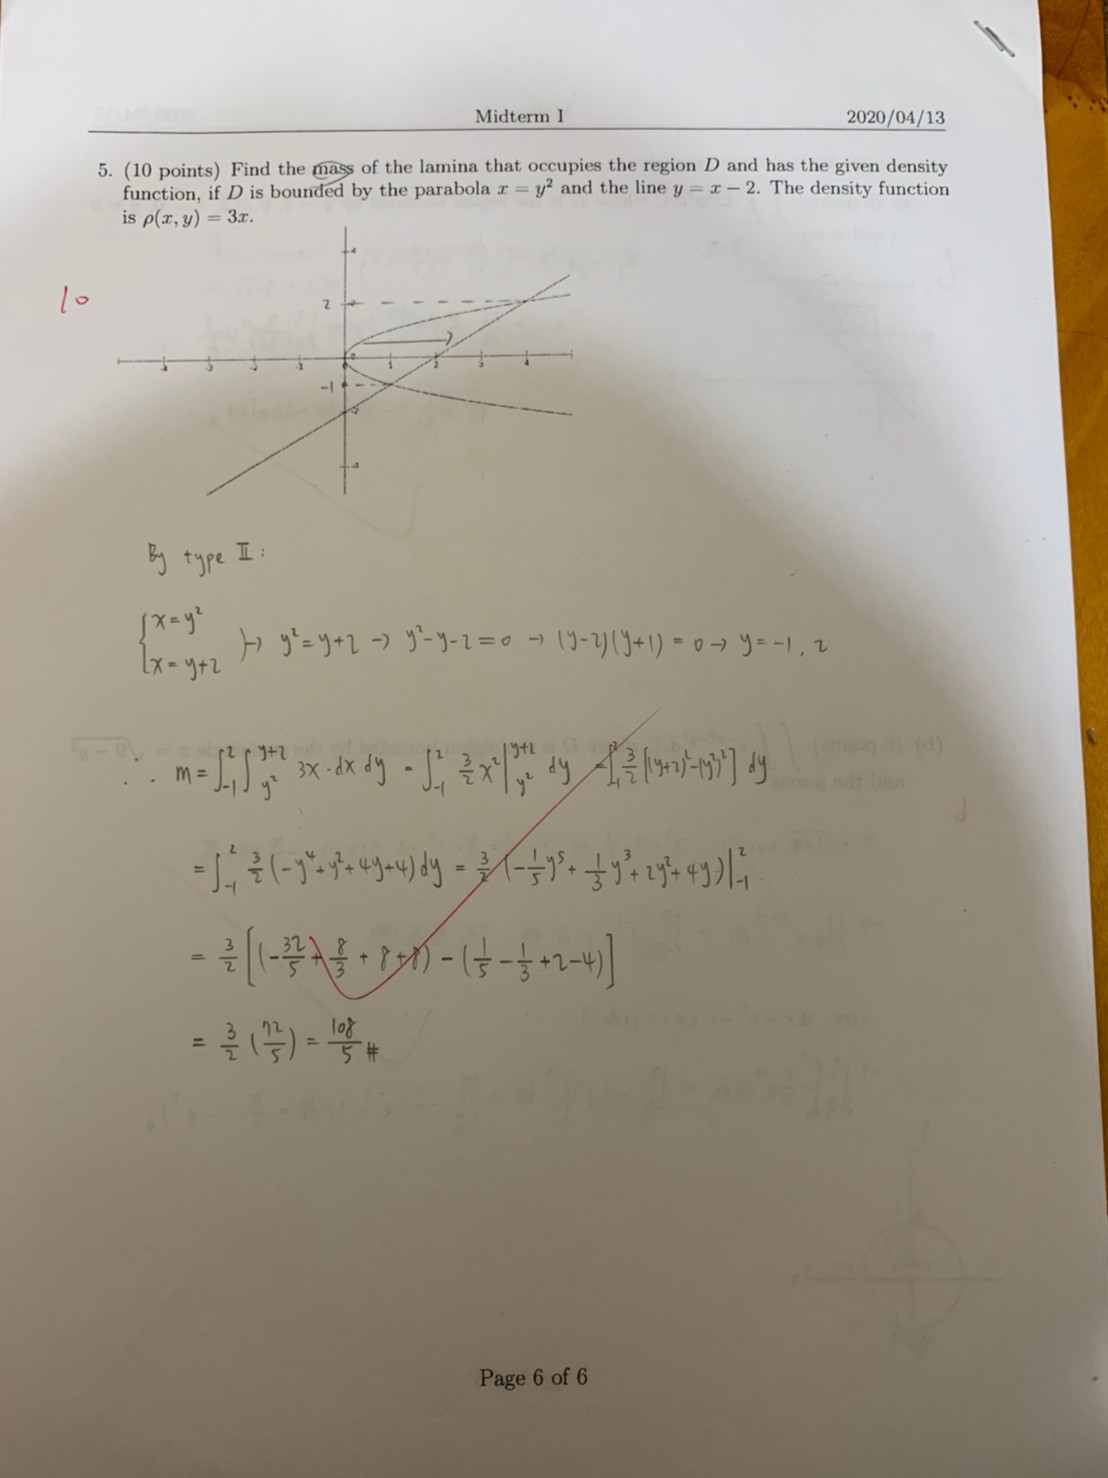 Midterm I 2020/04/13
5. (10 points) Find the mass of the lamina that occupies the region D and has the given density
function, if D is bounded by the parabola x = y² and the line y = x − 2. The density function
is ρ(x, y) = 3x.
10
2
1 2 3 4
-1
By type II:
{x=y² x=y+2 }→ y²=y+2 → y²-y-2=0 → (y-2)(y+1)=0 → y=-1, 2
∴ m = ∫_{-1}^{2} ∫_{y²}^{y+2} 3x·dx dy = ∫_{-1}^{2} 3/2 x² |_{y²}^{y+2} dy = ∫_{-1}^{2} 3/2 [(y+2)²-(y²)²] dy
= ∫_{-1}^{2} 3/2 (-y⁴+y²+4y+4) dy = 3/2 (-1/5 y⁵ + 1/3 y³ + 2y² + 4y) |_{-1}^{2}
= 3/2 [(-32/5 + 8/3 + 8+8) - (1/5 - 1/3 + 2-4)]
= 3/2 (72/5) = 108/5 #
Page 6 of 6